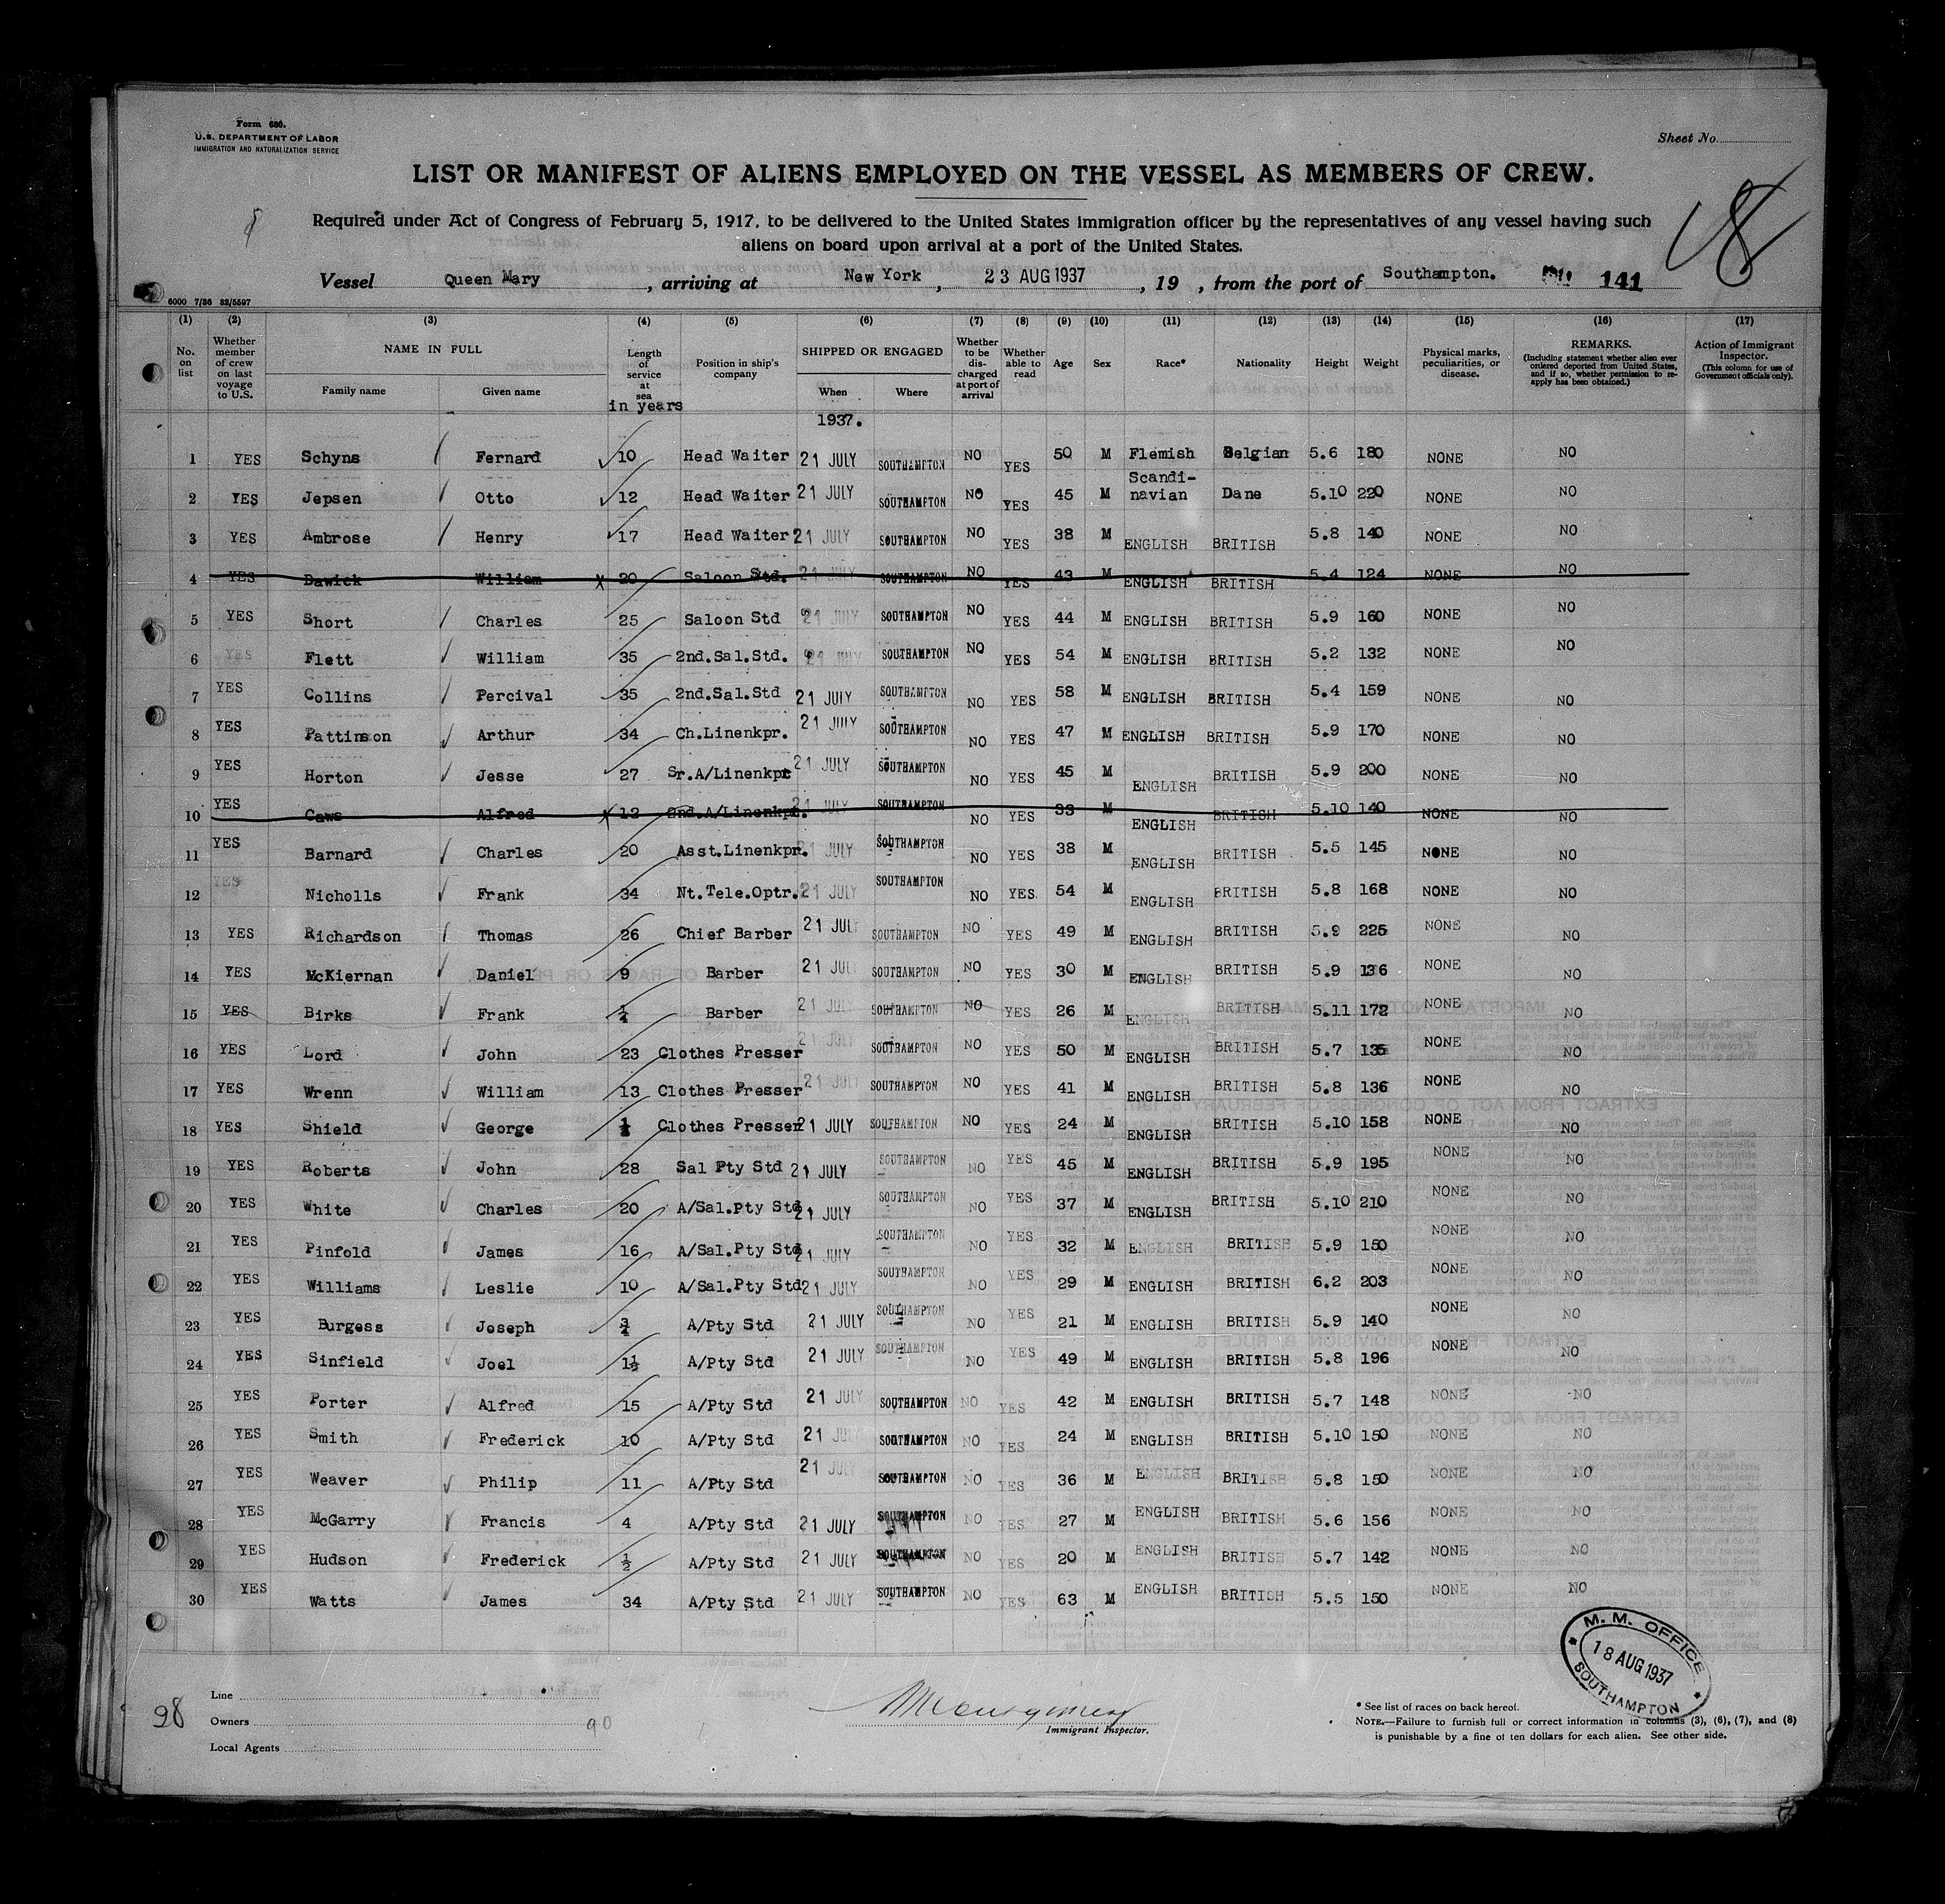 Form 680.
U.S. DEPARTMENT OF LABOR
IMMIGRATION AND NATURALIZATION SERVICE
Sheet No.
LIST OR MANIFEST OF ALIENS EMPLOYED ON THE VESSEL AS MEMBERS OF CREW.
18
Required under Act of Congress of February 5, 1917, to be delivered to the United States immigration officer by the representatives of any vessel having such
aliens on board upon arrival at a port of the United States.
Vessel Queen Mary, arriving at New York, 23 AUG 1937, 19 , from the port of Southampton. 141
6000 7/36 32/5597
(1) (2) (3) (4) (5) (6) (7) (8) (9) (10) (11) (12) (13) (14) (15) (16) (17)
No. on list Whether member of crew on last voyage to U.S. NAME IN FULL Family name Given name Length of service at sea in years Position in ship's company SHIPPED OR ENGAGED When Where Whether to be discharged at port of arrival Whether able to read Age Sex Race* Nationality Height Weight Physical marks, peculiarities, or disease. REMARKS. (Including statement whether alien ever ordered deported from United States, and if so, whether permission to reapply has been obtained.) Action of Immigrant Inspector. (This column for use of Government officials only).
1937.
1 YES Schyns Fernard 10 Head Waiter 21 JULY SOUTHAMPTON NO YES 50 M Flemish Belgian 5.6 180 NONE NO
2 YES Jepsen Otto 12 Head Waiter 21 JULY SOUTHAMPTON NO YES 45 M Scandi-navian Dane 5.10 220 NONE NO
3 YES Ambrose Henry 17 Head Waiter 21 JULY SOUTHAMPTON NO YES 38 M ENGLISH BRITISH 5.8 140 NONE NO
4 YES Dawick William x 20 Saloon Std. 21 JULY SOUTHAMPTON NO YES 43 M ENGLISH BRITISH 5.4 124 NONE NO
5 YES Short Charles 25 Saloon Std 21 JULY SOUTHAMPTON NO YES 44 M ENGLISH BRITISH 5.9 160 NONE NO
6 YES Flett William 35 2nd.Sal.Std. 21 JULY SOUTHAMPTON NO YES 54 M ENGLISH BRITISH 5.2 132 NONE NO
7 YES Collins Percival 35 2nd.Sal.Std 21 JULY SOUTHAMPTON NO YES 58 M ENGLISH BRITISH 5.4 159 NONE NO
8 YES Pattinson Arthur 34 Ch.Linenkpr. 21 JULY SOUTHAMPTON NO YES 47 M ENGLISH BRITISH 5.9 170 NONE NO
9 YES Horton Jesse 27 Sr.A/Linenkpr 21 JULY SOUTHAMPTON NO YES 45 M ENGLISH BRITISH 5.9 200 NONE NO
10 YES Caws Alfred x 12 2nd.A/Linenkpr. 21 JULY SOUTHAMPTON NO YES 33 M ENGLISH BRITISH 5.10 140 NONE NO
11 YES Barnard Charles 20 Asst.Linenkpr. 21 JULY SOUTHAMPTON NO YES 38 M ENGLISH BRITISH 5.5 145 NONE NO
12 YES Nicholls Frank 34 Nt.Tele.Optr. 21 JULY SOUTHAMPTON NO YES 54 M ENGLISH BRITISH 5.8 168 NONE NO
13 YES Richardson Thomas 26 Chief Barber 21 JULY SOUTHAMPTON NO YES 49 M ENGLISH BRITISH 5.9 225 NONE NO
14 YES McKiernan Daniel 9 Barber 21 JULY SOUTHAMPTON NO YES 30 M ENGLISH BRITISH 5.9 136 NONE NO
15 YES Birks Frank 1/4 Barber 21 JULY SOUTHAMPTON NO YES 26 M ENGLISH BRITISH 5.11 172 NONE NO
16 YES Lord John 23 Clothes Presser 21 JULY SOUTHAMPTON NO YES 50 M ENGLISH BRITISH 5.7 135 NONE NO
17 YES Wrenn William 13 Clothes Presser 21 JULY SOUTHAMPTON NO YES 41 M ENGLISH BRITISH 5.8 136 NONE NO
18 YES Shield George Clothes Presser 21 JULY SOUTHAMPTON NO YES 24 M ENGLISH BRITISH 5.10 158 NONE NO
19 YES Roberts John 28 Sal Pty Std 21 JULY SOUTHAMPTON NO YES 45 M ENGLISH BRITISH 5.9 195 NONE NO
20 YES White Charles 20 A/Sal.Pty Std 21 JULY SOUTHAMPTON NO YES 37 M ENGLISH BRITISH 5.10 210 NONE NO
21 YES Pinfold James 16 A/Sal.Pty Std 21 JULY SOUTHAMPTON NO YES 32 M ENGLISH BRITISH 5.9 150 NONE NO
22 YES Williams Leslie 10 A/Sal.Pty Std 21 JULY SOUTHAMPTON NO YES 29 M ENGLISH BRITISH 6.2 203 NONE NO
23 YES Burgess Joseph 3/4 A/Pty Std 21 JULY SOUTHAMPTON NO YES 21 M ENGLISH BRITISH 5.9 140 NONE NO
24 YES Sinfield Joel 1½ A/Pty Std 21 JULY SOUTHAMPTON NO YES 49 M ENGLISH BRITISH 5.8 196 NONE NO
25 YES Porter Alfred 15 A/Pty Std 21 JULY SOUTHAMPTON NO YES 42 M ENGLISH BRITISH 5.7 148 NONE NO
26 YES Smith Frederick 10 A/Pty Std 21 JULY SOUTHAMPTON NO YES 24 M ENGLISH BRITISH 5.10 150 NONE NO
27 YES Weaver Philip 11 A/Pty Std 21 JULY SOUTHAMPTON NO YES 36 M ENGLISH BRITISH 5.8 150 NONE NO
28 YES McGarry Francis 4 A/Pty Std 21 JULY SOUTHAMPTON NO YES 27 M ENGLISH BRITISH 5.6 156 NONE NO
29 YES Hudson Frederick ½ A/Pty Std 21 JULY SOUTHAMPTON NO YES 20 M ENGLISH BRITISH 5.7 142 NONE NO
30 YES Watts James 34 A/Pty Std 21 JULY SOUTHAMPTON NO YES 63 M ENGLISH BRITISH 5.5 150 NONE NO
M. M. OFFICE
18 AUG 1937
SOUTHAMPTON
98
Line
Owners 90
Local Agents
Immigrant Inspector.
* See list of races on back hereof.
NOTE.—Failure to furnish full or correct information in columns (3), (6), (7), and (8)
is punishable by a fine of ten dollars for each alien. See other side.